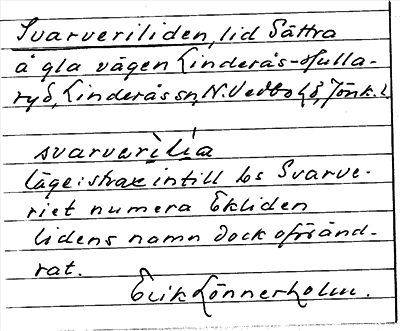 Svarveriliden, lid Sättra
å gla vägen Linderås-Hulla-
ryd, Linderås sn, N. Vedbo hd, Jönk. l
svarverìlía
läge: strax intill bs Svarve-
riet numera Ekliden
lidens namn dock oföränd-
rat.
Erik Lönnerholm.